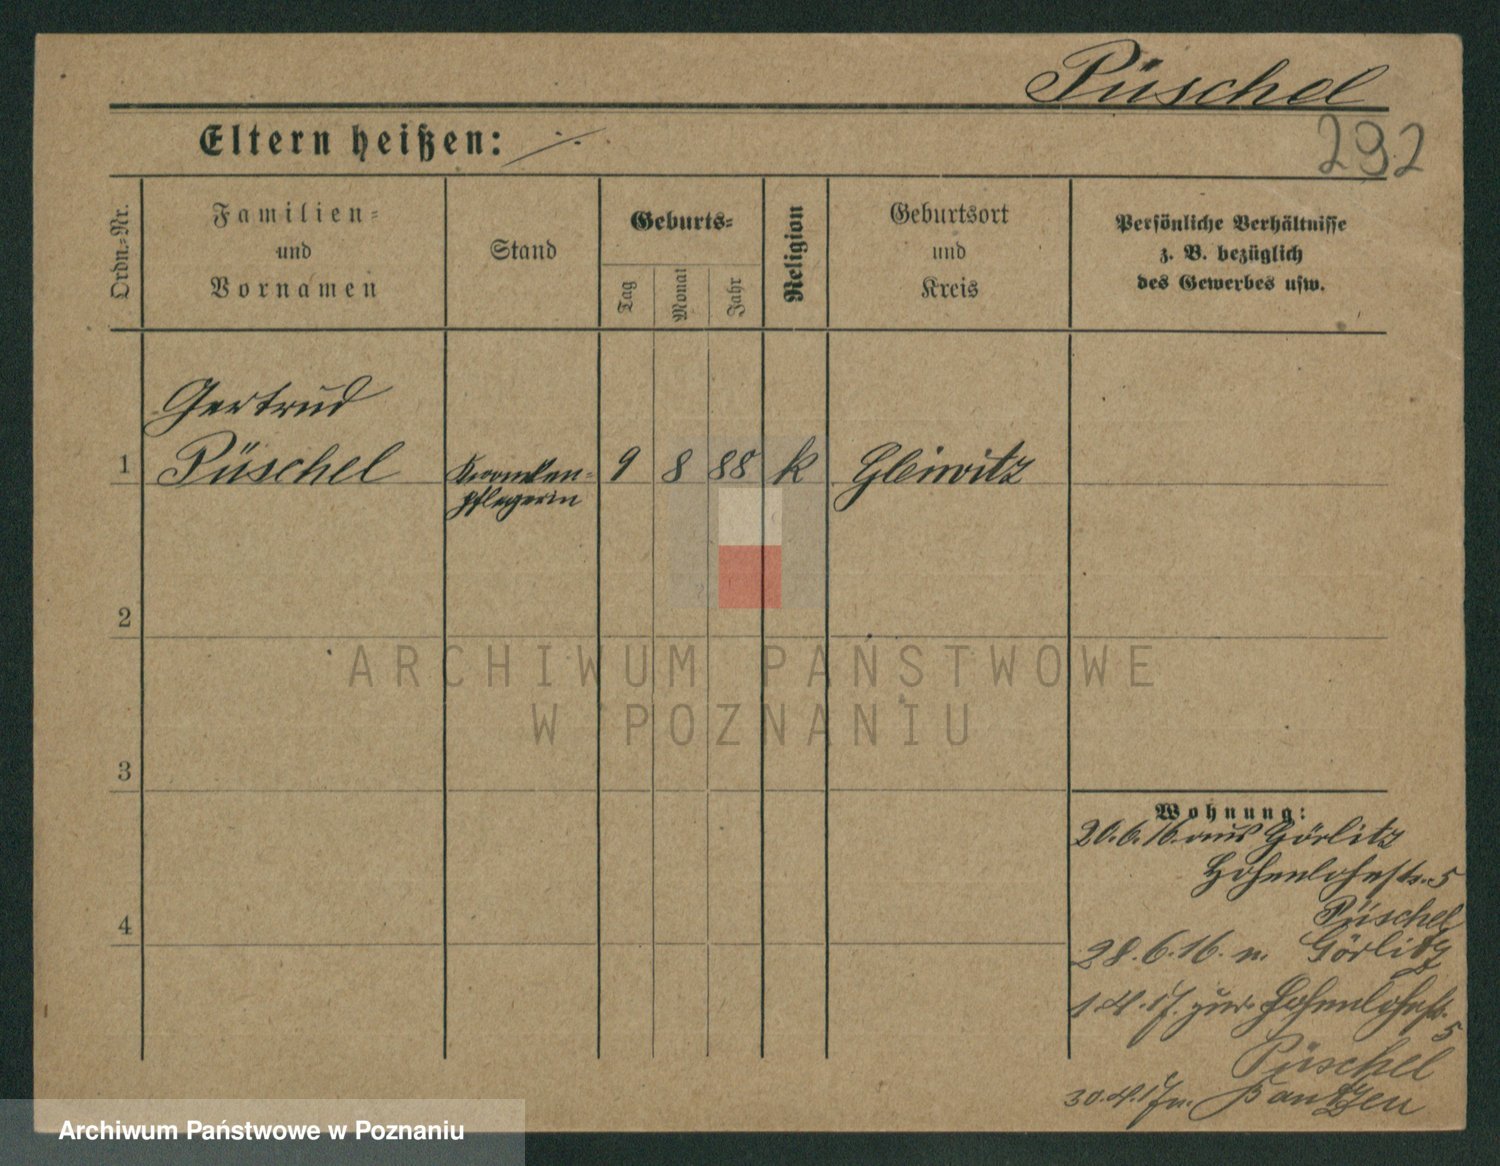 Püschel
Eltern heißen: ./.
292
Ordn.=Nr.
Familien=
und
Vornamen
Stand
Geburts=
Tag
Monat
Jahr
Religion
Geburtsort
und
Kreis
Persönliche Verhältnisse
z. B. bezüglich
des Gewerbes usw.
Gertrud
1 Püschel Kranken= 9 8 88 k Gleiwitz
pflegerin
2
ARCHIWUM PAŃSTWOWE
W POZNANIU
3
Wohnung:
20.6.16. aus Görlitz
Hohenlohestr. 5
Püschel
4
28.6.16. n. Görlitz
1.4.17. zur. Hohenlohestr.
5
Püschel
30.4.17 n.
Archiwum Państwowe w Poznaniu